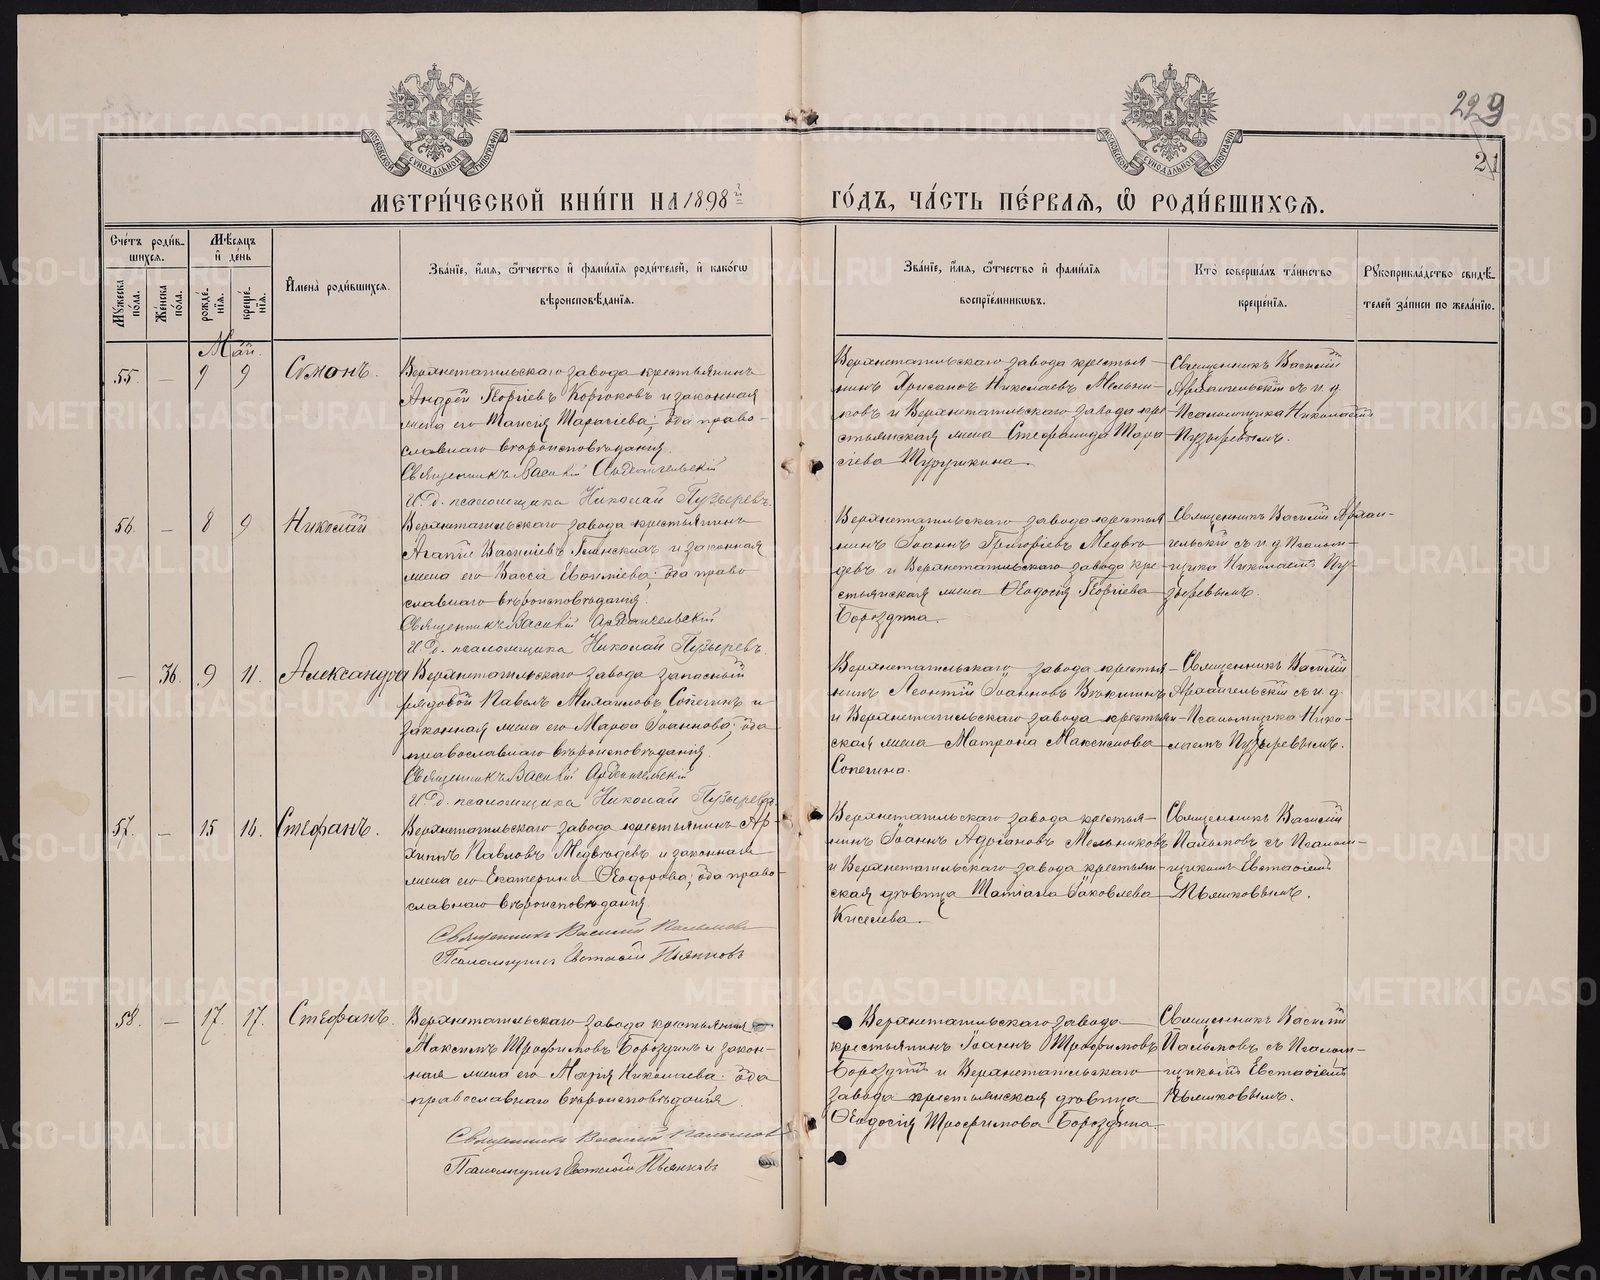 229
21
МЕТРИ́ЧЕСКОЙ КНИ́ГИ НА 1898й ГО́ДЪ, ЧА́СТЬ ПЕ́РВАЯ, Ѡ РОДИ́ВШИХСЯ.
Сче́тъ роди́в-
шихся.
Мѣ́сяцъ
и҆ де́нь
Мꙋ́жеска по́ла.
Же́нска по́ла.
рожде́-
нїя.
креще́-
нїя.
И҆мена̀ роди́вшихся.
Зва́нїе, и҆́мя, ѻ҆́тчество и҆ фами́лїя роди́телей, и҆ како́гѡ
вѣроисповѣ́данїя.
Зва́нїе, и҆́мя, ѻ҆́тчество и҆ фами́лїя
воспрїе́мникѡвъ.
Кто̀ соверша́лъ та́инство
креще́нїя.
Рꙋкоприкла́дство свидѣ́-
телей за́писи по жела́нїю.
Май.
55. — 9 9 Симонъ.
Верхнетагильскаго завода крестьянинъ
Андрей Георгіевъ Корюковъ и законная
жена его Таисія Тарасіева; оба право-
славнаго вѣроисповѣданія.
Священникъ Василій Архангельскій
И. д. псаломщика Николай Пузыревъ.
Верхнетагильскаго завода крестья-
нинъ Хрисанѳъ Николаевъ Мельни-
ковъ и Верхнетагильскаго завода кре-
стьянская жена Стефанида Тара-
сіева
Священникъ Василій
Архангельскій съ и. д.
Псаломщика Николаемъ
Пузыревымъ.
56. — 8 9 Николай
Верхнетагильскаго завода крестьянинъ
Агапій Василіевъ и законная
жена его Васса оба право
славнаго вѣроисповѣданія.
Священникъ Василій Архангельскій
И. д. псаломщика Николай Пузыревъ.
Верхнетагильскаго завода крестья
нинъ Іоаннъ Григоріевъ Медвѣ
девъ и Верхнетагильскаго завода кре-
стьянская жена Ѳеодосія Георгіева
Бороздина.
Священникъ Василій Архан-
гельскій съ и. д. Псалом-
щика Николаемъ Пу-
зыревымъ.
— 36. 9 11. Александра
Верхнетагильскаго завода запасный
рядовой Павелъ Михаиловъ Сопегинъ и
законная жена его Марѳа Іоаннова; оба
православнаго вѣроисповѣданія.
Священникъ Василій Архангельскій
И. д. псаломщика Николай Пузыревъ.
Верхнетагильскаго завода крестья-
нинъ Леонтій Іоанновъ
и Верхнетагильскаго завода крестьян-
ская жена Матрона Максимова
Сопегина.
Священникъ Василій
Архангельскій съ и. д.
Псаломщика Нико-
лаемъ Пузыревымъ.
57. — 15 16. Стефанъ.
Верхнетагильскаго завода крестьянинъ Ар-
хиппъ Павловъ Медвѣдевъ и законная
жена его Екатерина Ѳеодорова; оба право-
славнаго вѣроисповѣданія.
Священникъ Василій Пальмовъ
Псаломщикъ Евстаѳій Пьянковъ
Верхнетагильскаго завода крестья-
нинъ Іоаннъ Мельниковъ
и Верхнетагильскаго завода крестьян-
ская дѣвица Татіана Іаковлева
Киселева.
Священникъ Василій
Пальмовъ съ Псалом-
щикомъ Евстаѳіемъ
Пьянковымъ.
58. — 17. 17. Стефанъ.
Верхнетагильскаго завода крестьянинъ
Максимъ Трофимовъ Бороздинъ и закон-
ная жена его Марія Николаева; оба
православнаго вѣроисповѣданія.
Священникъ Василій Пальмовъ
Псаломщикъ Евстаѳій Пьянковъ
Верхнетагильскаго завода
крестьянинъ Іоаннъ Трофимовъ
Бороздинъ и Верхнетагильскаго
завода крестьянская дѣвица
Ѳеодосія Трофимова Бороздина.
Священникъ Василій
Пальмовъ съ Псалом-
щикомъ Евстаѳіемъ
Пьянковымъ.
METRIKI.GASO-URAL.RU